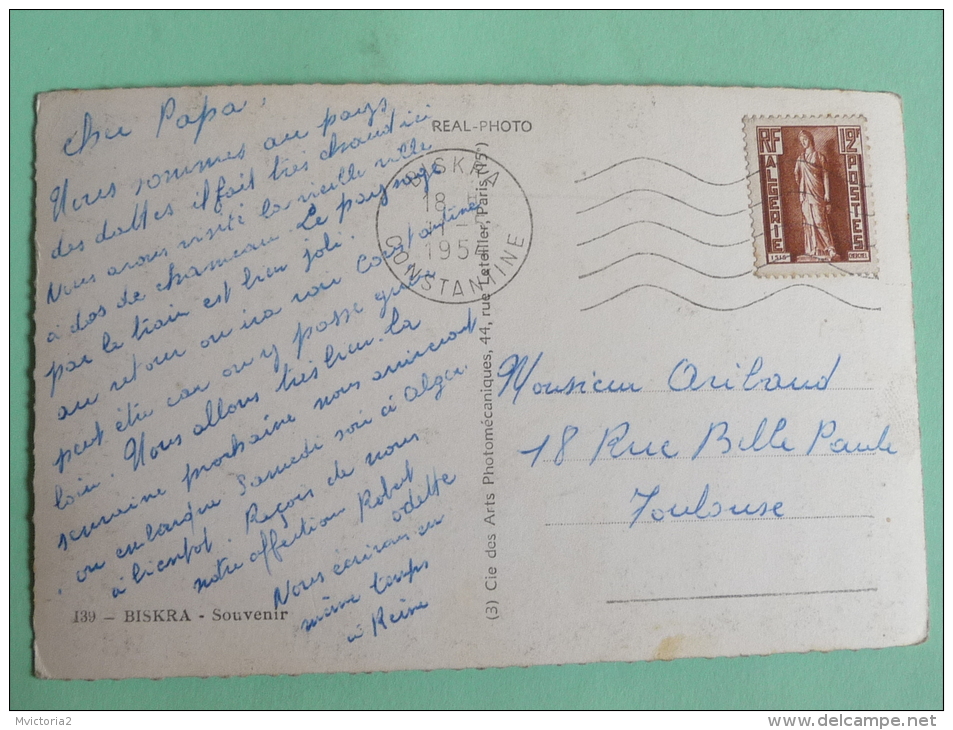 cher Papa,
Nous sommes au pays
des dattes il fait très chaud ici
Nous avons visité la vieille ville
à dos de chameau. Le paysage
par le train est bien joli.
au retour on ira voir Constantine
peut être car on y passe guère
loin. Nous allons très bien. la
semaine prochaine nous arriverons
on embarque Samedi soir à Alger
à bientôt. Reçois de nous
notre affection Robert
odette
Nous écrivons en
même temps
à Reine
139 - BISKRA - Souvenir
REAL-PHOTO
(3) Cie des Arts Photomécaniques, 44, rue Letellier, Paris (15e)
BISKRA
18
1954
CONSTANTINE
RF
12F
ALGERIE
POSTES
Monsieur Aribaud
18 Rue Belle Paule
Toulouse
Mvictoria2
www.delcampe.net